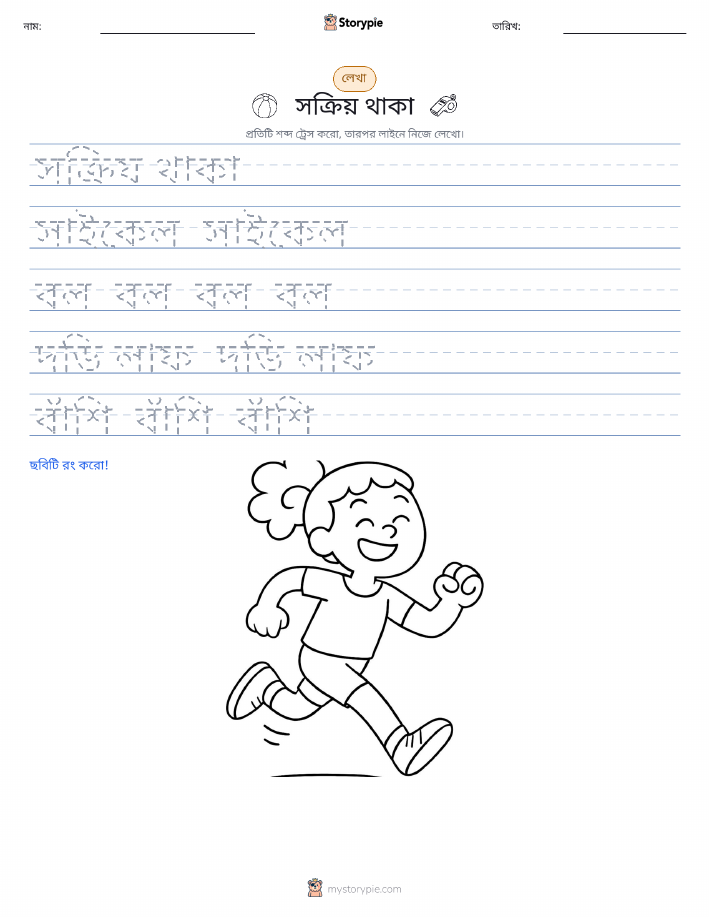 নাম:
Storypie
তারিখ:
লেখা
সক্রিয় থাকা
প্রতিটি শব্দ ট্রেস করো, তারপর লাইনে নিজে লেখো।
সক্রিয় থাকা
সাইকেল সাইকেল
বল বল বল বল
দড়ি লাফ দড়ি লাফ
বাঁশি বাঁশি বাঁশি
ছবিটি রং করো!
mystorypie.com